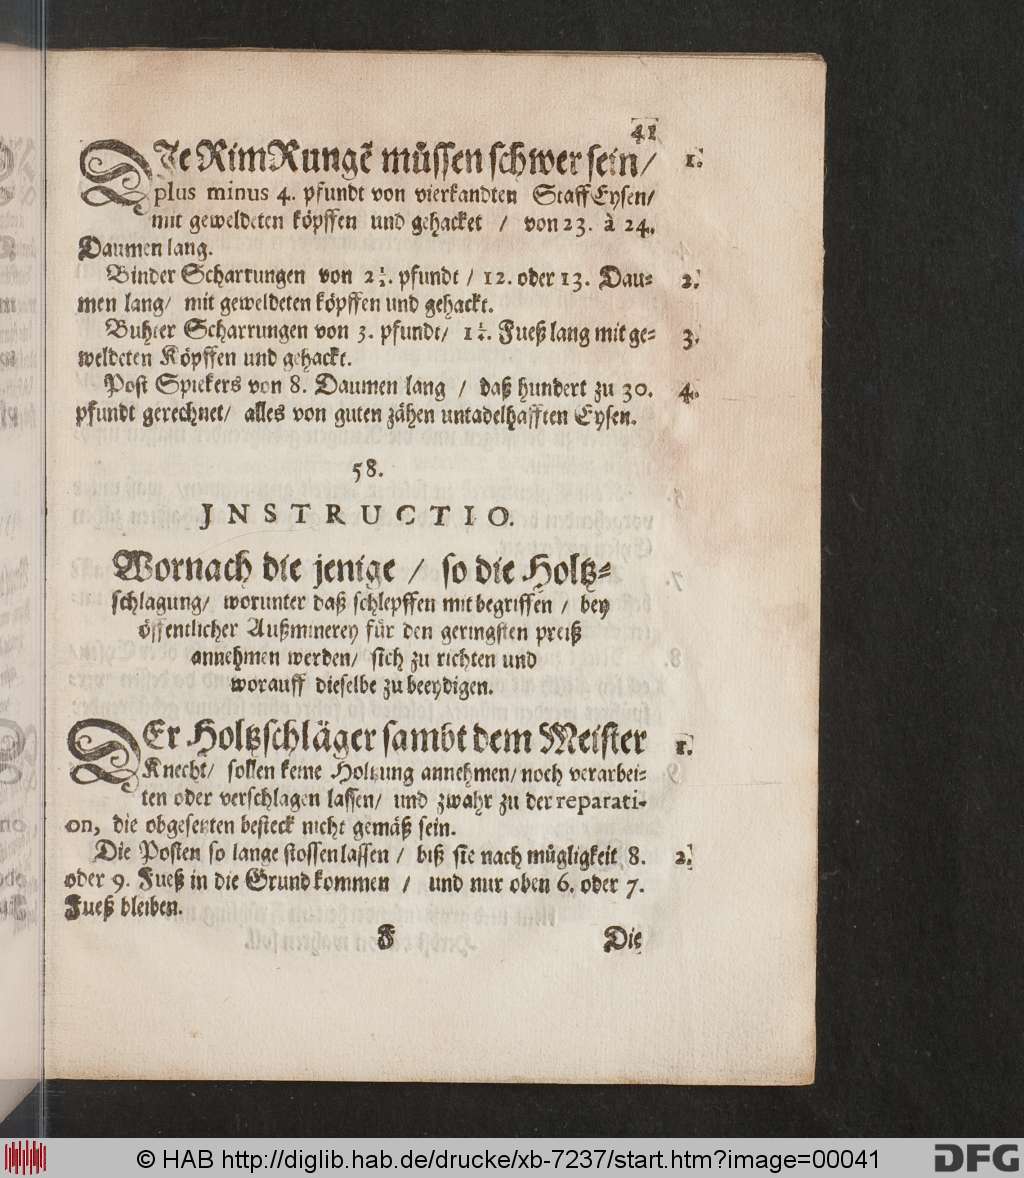 41
DJe RimRungẽ müssen schwer sein/ 1.
plus minus 4. pfundt von vierkandten StaffEysen/
mit geweldeten köpffen und gehacket / von 23. à 24.
Daumen lang.
Binder Scharrungen von 2½. pfundt / 12. oder 13. Dau- 2.
men lang/ mit geweldeten köpffen und gehackt.
Buhter Scharrungen von 3. pfundt/ 1¼. Fueß lang mit ge- 3.
weldeten Köpffen und gehackt.
Post Spiekers von 8. Daumen lang / daß hundert zu 30. 4.
pfundt gerechnet/ alles von guten zähen untadelhafften Eysen.
58.
JNSTRUCTIO.
Wornach die jenige / so die Holtz-
schlagung/ worunter daß schlepffen mit begriffen / bey
öffentlicher Außminerey für den geringsten preiß
annehmen werden/ sich zu richten und
worauff dieselbe zu beeydigen.
DEr Holtzschläger sambt dem Meister 1.
Knecht/ sollen keine Holtzung annehmen/ noch verarbei-
ten oder verschlagen lassen/ und zwahr zu der reparati-
on, die obgesetzten besteck nicht gemäß sein.
Die Posten so lange stossen lassen / biß sie nach mügligkeit 8. 2.
oder 9. Fueß in die Grund kommen / und nur oben 6. oder 7.
Fueß bleiben.
F Die
© HAB http://diglib.hab.de/drucke/xb-7237/start.htm?image=00041 DFG